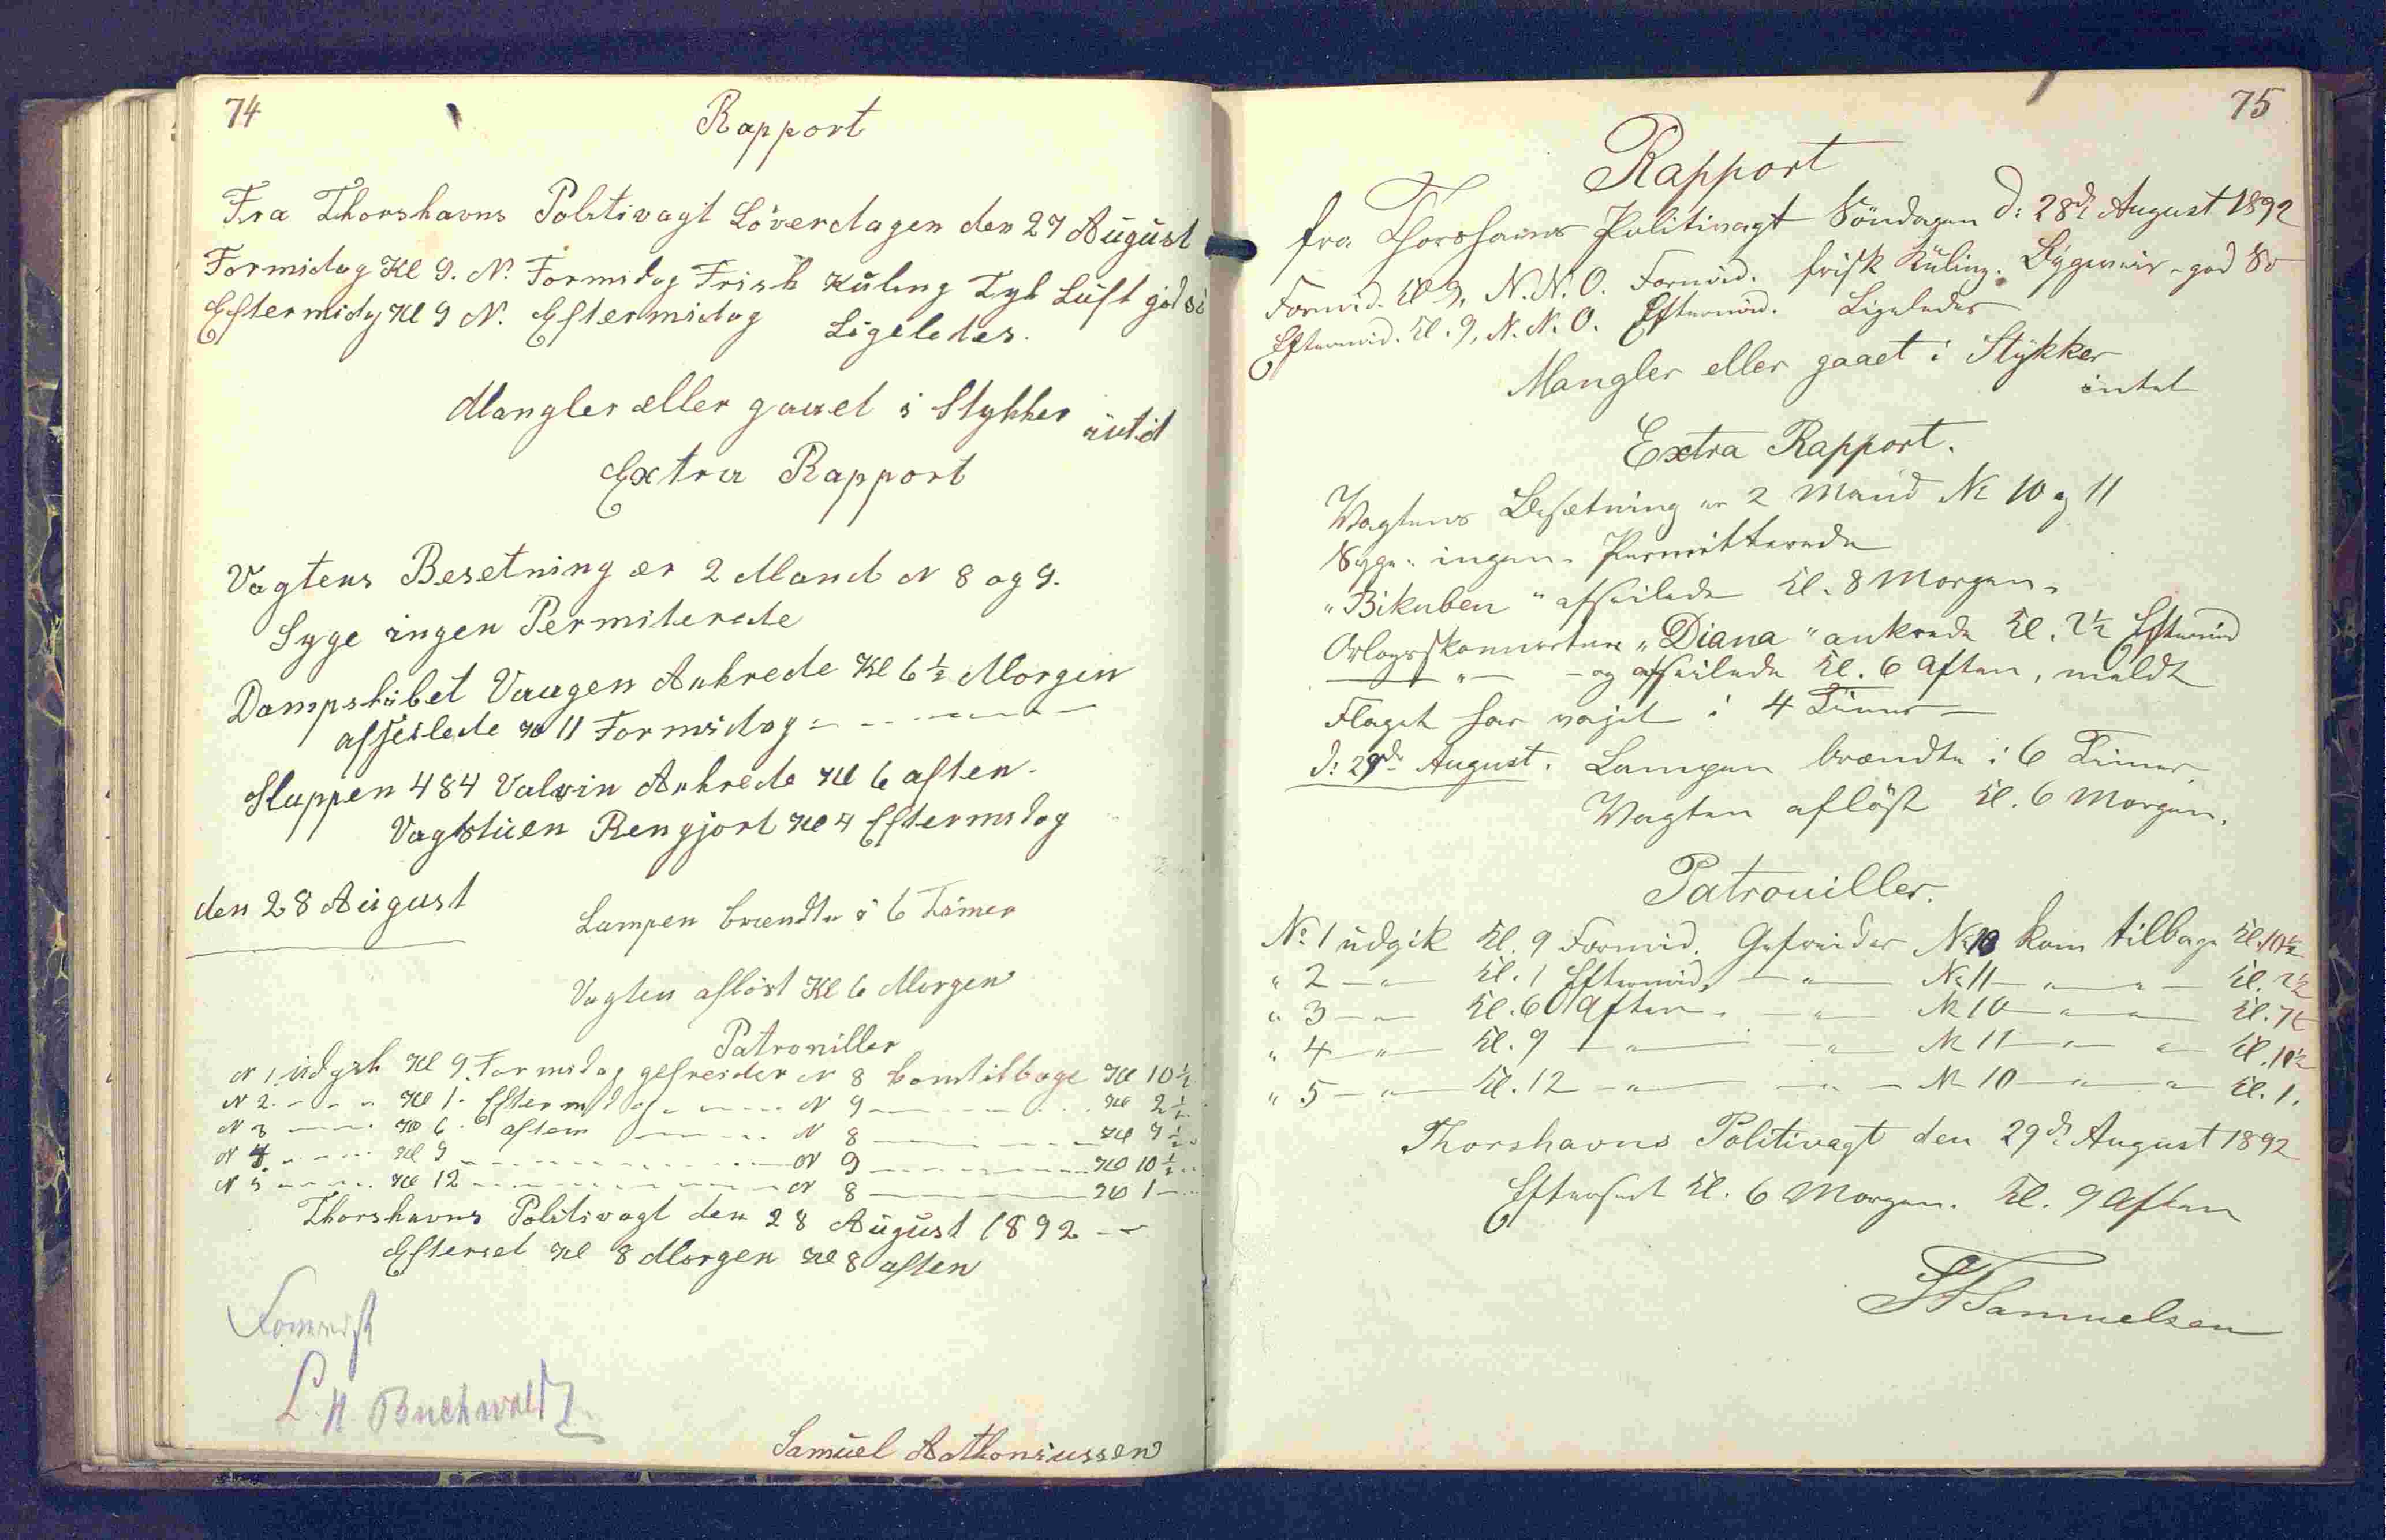 74
Rapport
Fra Thorshavns Politivagt Löverdagen den 27 August
Formidag Kl 9. N. Formidag Frisk Kuling Tyk Luft god Sö
Eftermidag Kl 9 N. Eftermidag Ligeledes.
Mangler eller gaaet i Stykker intet
Extra Rapport
Vagtens Besetning er 2 Mand N 8 og 9.
Syge ingen Permiterede
Dampskibet Vaagen Ankrede Kl 6½ Morgen
afseilede Kl 11 Formidag
Sluppen 484 Valvin Ankrede Kl 6 aften
Vagtstuen Rengjort Kl 4 Eftermidag
den 28 August
Lampen brændte i 6 Timer
Vagten aflöst Kl 6 Morgen
Patroniller
N 1 udgik Kl 9 Formidag gefreider N 8 kom tilbage Kl 10½
N 2 - - - Kl 1 Eftermidag - - - N 9 - - - Kl 2½
N 3 - - - Kl 6 aften - - - N 8 - - - Kl 7½
N 4 - - - Kl 9 - - - N 9 - - - Kl 10½
N 5 - - - Kl 12 - - - N 8 - - - Kl 1
Thorshavns Politivagt den 28 August 1892
Efterset Kl 8 Morgen Kl 8 aften
L. H. Buchwaldt
Samuel Anthoniussen
75
Rapport
fra Thorshavns Politivagt Söndagen d: 28de August 1892
Formid. Kl 9, N.N.O. Formid. frisk Kuling. Bygeveir - god Sö
Eftermid. Kl. 9, N.N.O. Eftermid. Ligeledes
Mangler eller gaaet i Stykker
intet
Extra Rapport.
Vagtens Besætning er 2 Mand No 10 og 11
Syge: ingen Permitterede
"Bikuben" afseilede Kl. 8 Morgen.
Orlogsskonnerten "Diana" ankrede Kl. 2½ Eftermid
— " — - og afseilede Kl. 6 Aften, meldt
Flaget har vajet i 4 Timer —
d: 29de August. Lampen brændte i 6 Timer.
Vagten aflöst Kl. 6 Morgen.
Patrouiller.
No. 1 udgik Kl. 9 Formid. Gefreider No 10 kom tilbage Kl. 10½
" 2 — " — Kl. 1 Eftermid. — " — No 11 — " — " — Kl. 2½
" 3 — " — Kl. 6 Aften — " — No 10 — " — " — Kl. 7½
" 4 — " — Kl. 9 — " — — " — No 11 — " — " — Kl. 10½
" 5 — " — Kl. 12 — " — — " — No 10 — " — " — Kl. 1.
Thorshavns Politivagt den 29de August 1892
Efterset Kl. 6 Morgen. Kl. 9 Aften
Samuelsen